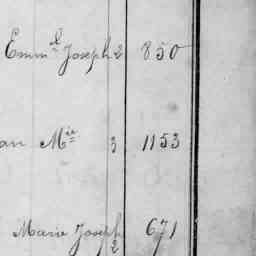 Emm^l Joseph 2 850
an M^ie 3 1153
Marie Joseph 2 671